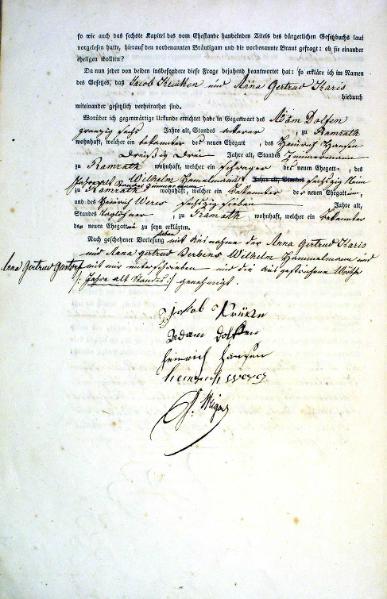 so wie auch das sechste Kapitel des vom Ehestande handelnden Titels des bürgerlichen Gesetzbuchs laut
vorgelesen hatte, hierauf den vorbenannten Bräutigam und die vorbenannte Braut gefragt: ob sie einander
ehelichen wollten?
Da nun jeder von beiden insbesondere diese Frage bejahend beantwortet hat: so erkläre ich im Namen
des Gesetzes, daß Jacob und Anna Gertrud Karis
hiedurch
miteinander gesetzlich verheirathet sind.
Worüber ich gegenwärtige Urkunde errichtet habe in Gegenwart des Adam Dolfen
zwanzig sechs Jahre alt, Standes Ackerer, zu Ramrath
wohnhaft, welcher ein Bekannter des neuen Ehegatten, des Heinrich Hansen
Dreißig Drei Jahre alt, Standes Zimmermann
zu Ramrath wohnhaft, welcher ein Schwager des neuen Ehegatten, des
Wilhelm Hammelmann Jahre alt, Standes
zu Ramrath wohnhaft, welcher ein Bekannter der neuen Ehegatten
und des Heinrich Wero fünfzig sieben Jahre alt,
Standes Taglöhner, zu Ramrath wohnhaft, welcher ein Bekannter
der neuen Ehegatten zu seyn erklärten.
Nach geschehener Vorlesung haben mit Ausnahme der Anna Gertrud Karis
und Anna Gertrud Wilhelm Hammelmann und
Anna Gertrud mit mir unterschrieben und die ausgestrichene Worte
Jahre alt Standes genehmigt.
Jacob
Adam Dolfen
Heinrich Hansen
Heinrich